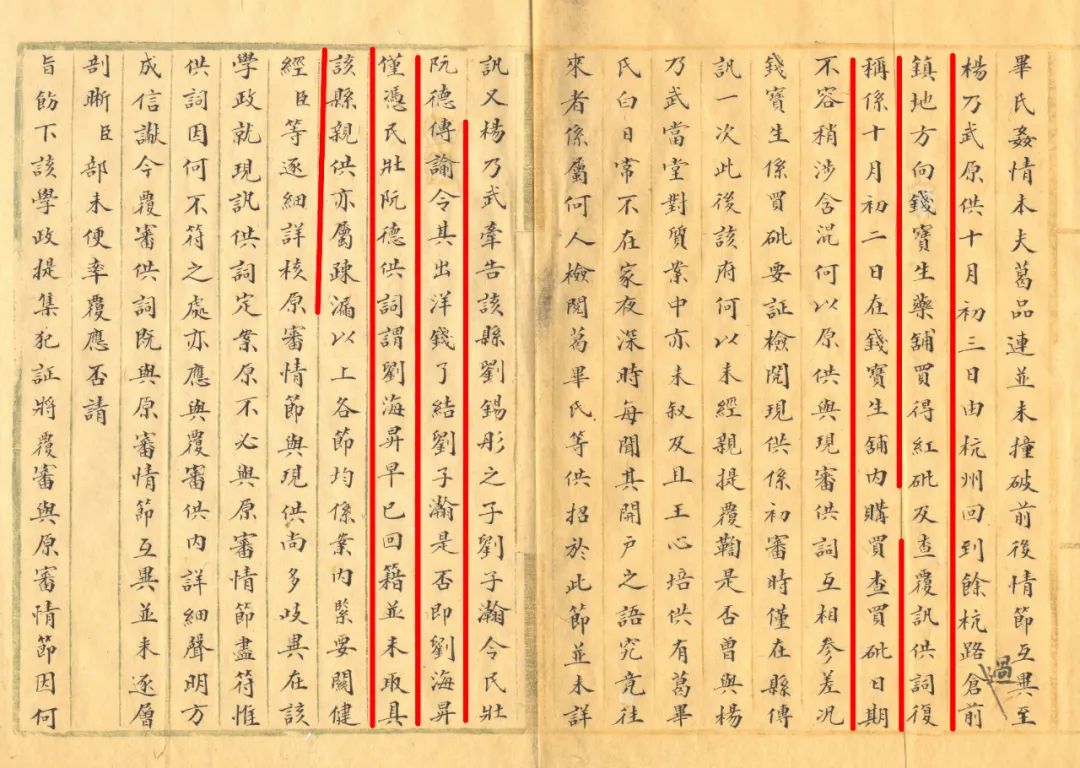 畢氏姦情本夫葛品連並未撞破前後情節互異至
楊乃武原供十月初三日由杭州回到餘杭路倉前
過
鎮地方向錢寶生藥舖買得紅砒及查覆訊供詞復
稱係十月初二日在錢寶生舖內購買查買砒日期
不容稍涉含混何以原供與現審供詞互相參差况
錢寶生係買砒要証檢閱現供係初審時僅在縣傳
訊一次此後該府何以未經親提覆鞫是否曾與楊
乃武當堂對質案中亦未叙及且王心培供有葛畢
氏白日常不在家夜深時每聞其開戶之語究竟往
來者係屬何人檢閱葛畢氏等供招於此節並未詳
訊又楊乃武牽告該縣劉錫彤之子劉子瀚令民壯
阮德傳諭令其出洋錢了結劉子瀚是否即劉海昇
僅憑民壯阮德供詞謂劉海昇早已回籍並未取具
該縣親供亦屬疎漏以上各節均係案內緊要關健
經臣等逐細詳核原審情節與現供尚多歧異在該
學政就現訊供詞定案原不必與原審情節盡符惟
供詞因何不符之處亦應與覆審供內詳細聲明方
成信讞今覆審供詞既與原審情節互異並未逐層
剖晰臣部未便率覆應否請
旨飭下該學政提集犯証將覆審與原審情節因何